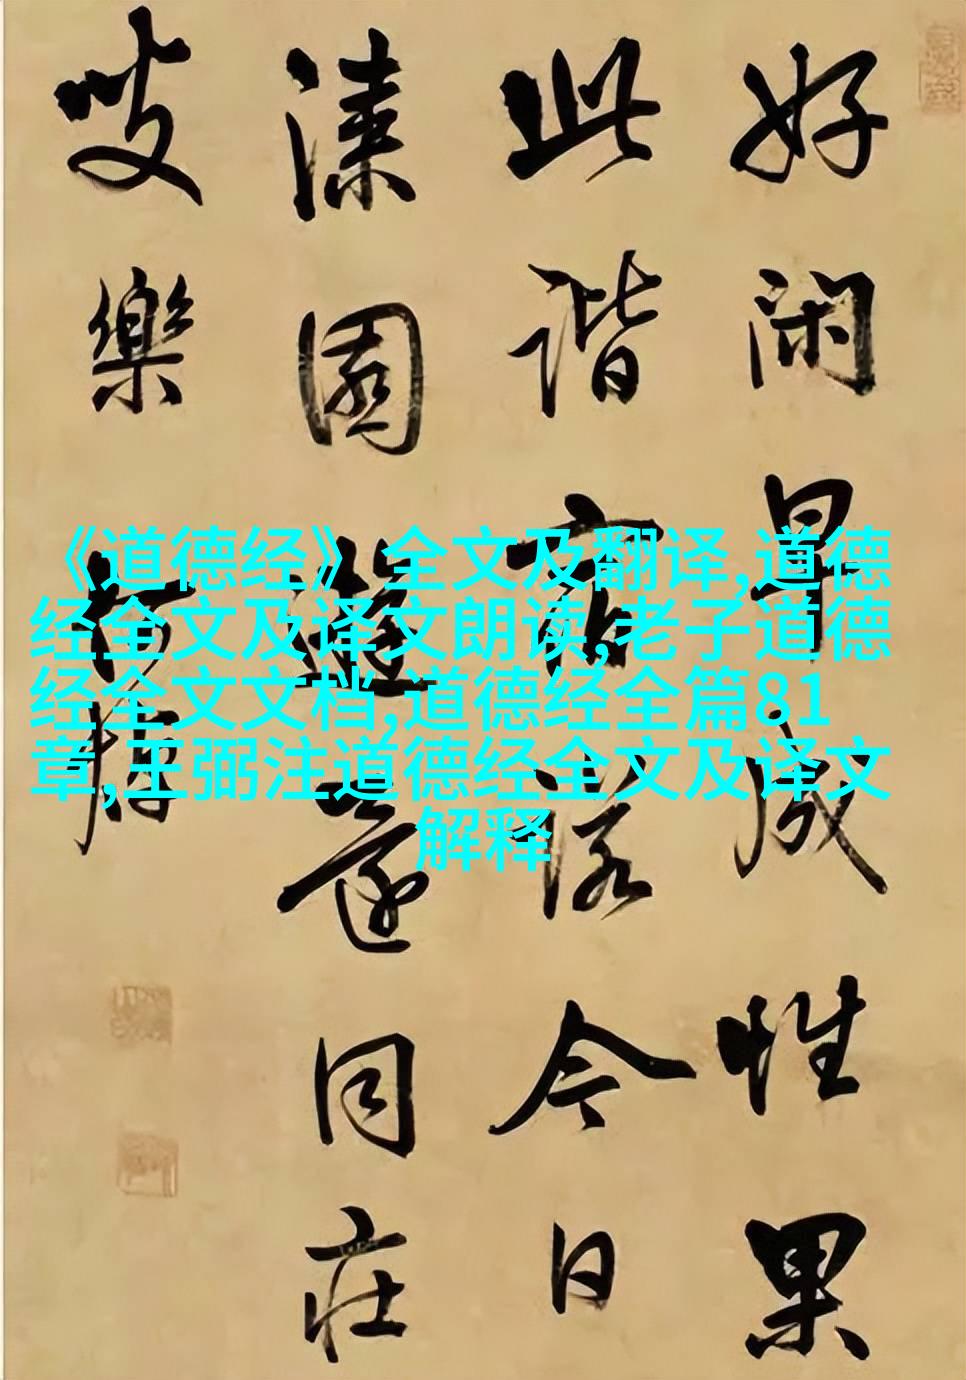 好闲早成性果
此谐宿诺今日
漆園遊還同庄
叟樂
《道德经》全文及翻译,道德
经全文及译文朗读,老子道德
经全文文档,道德经全篇81
章,王弼注道德经全文及译文
解释